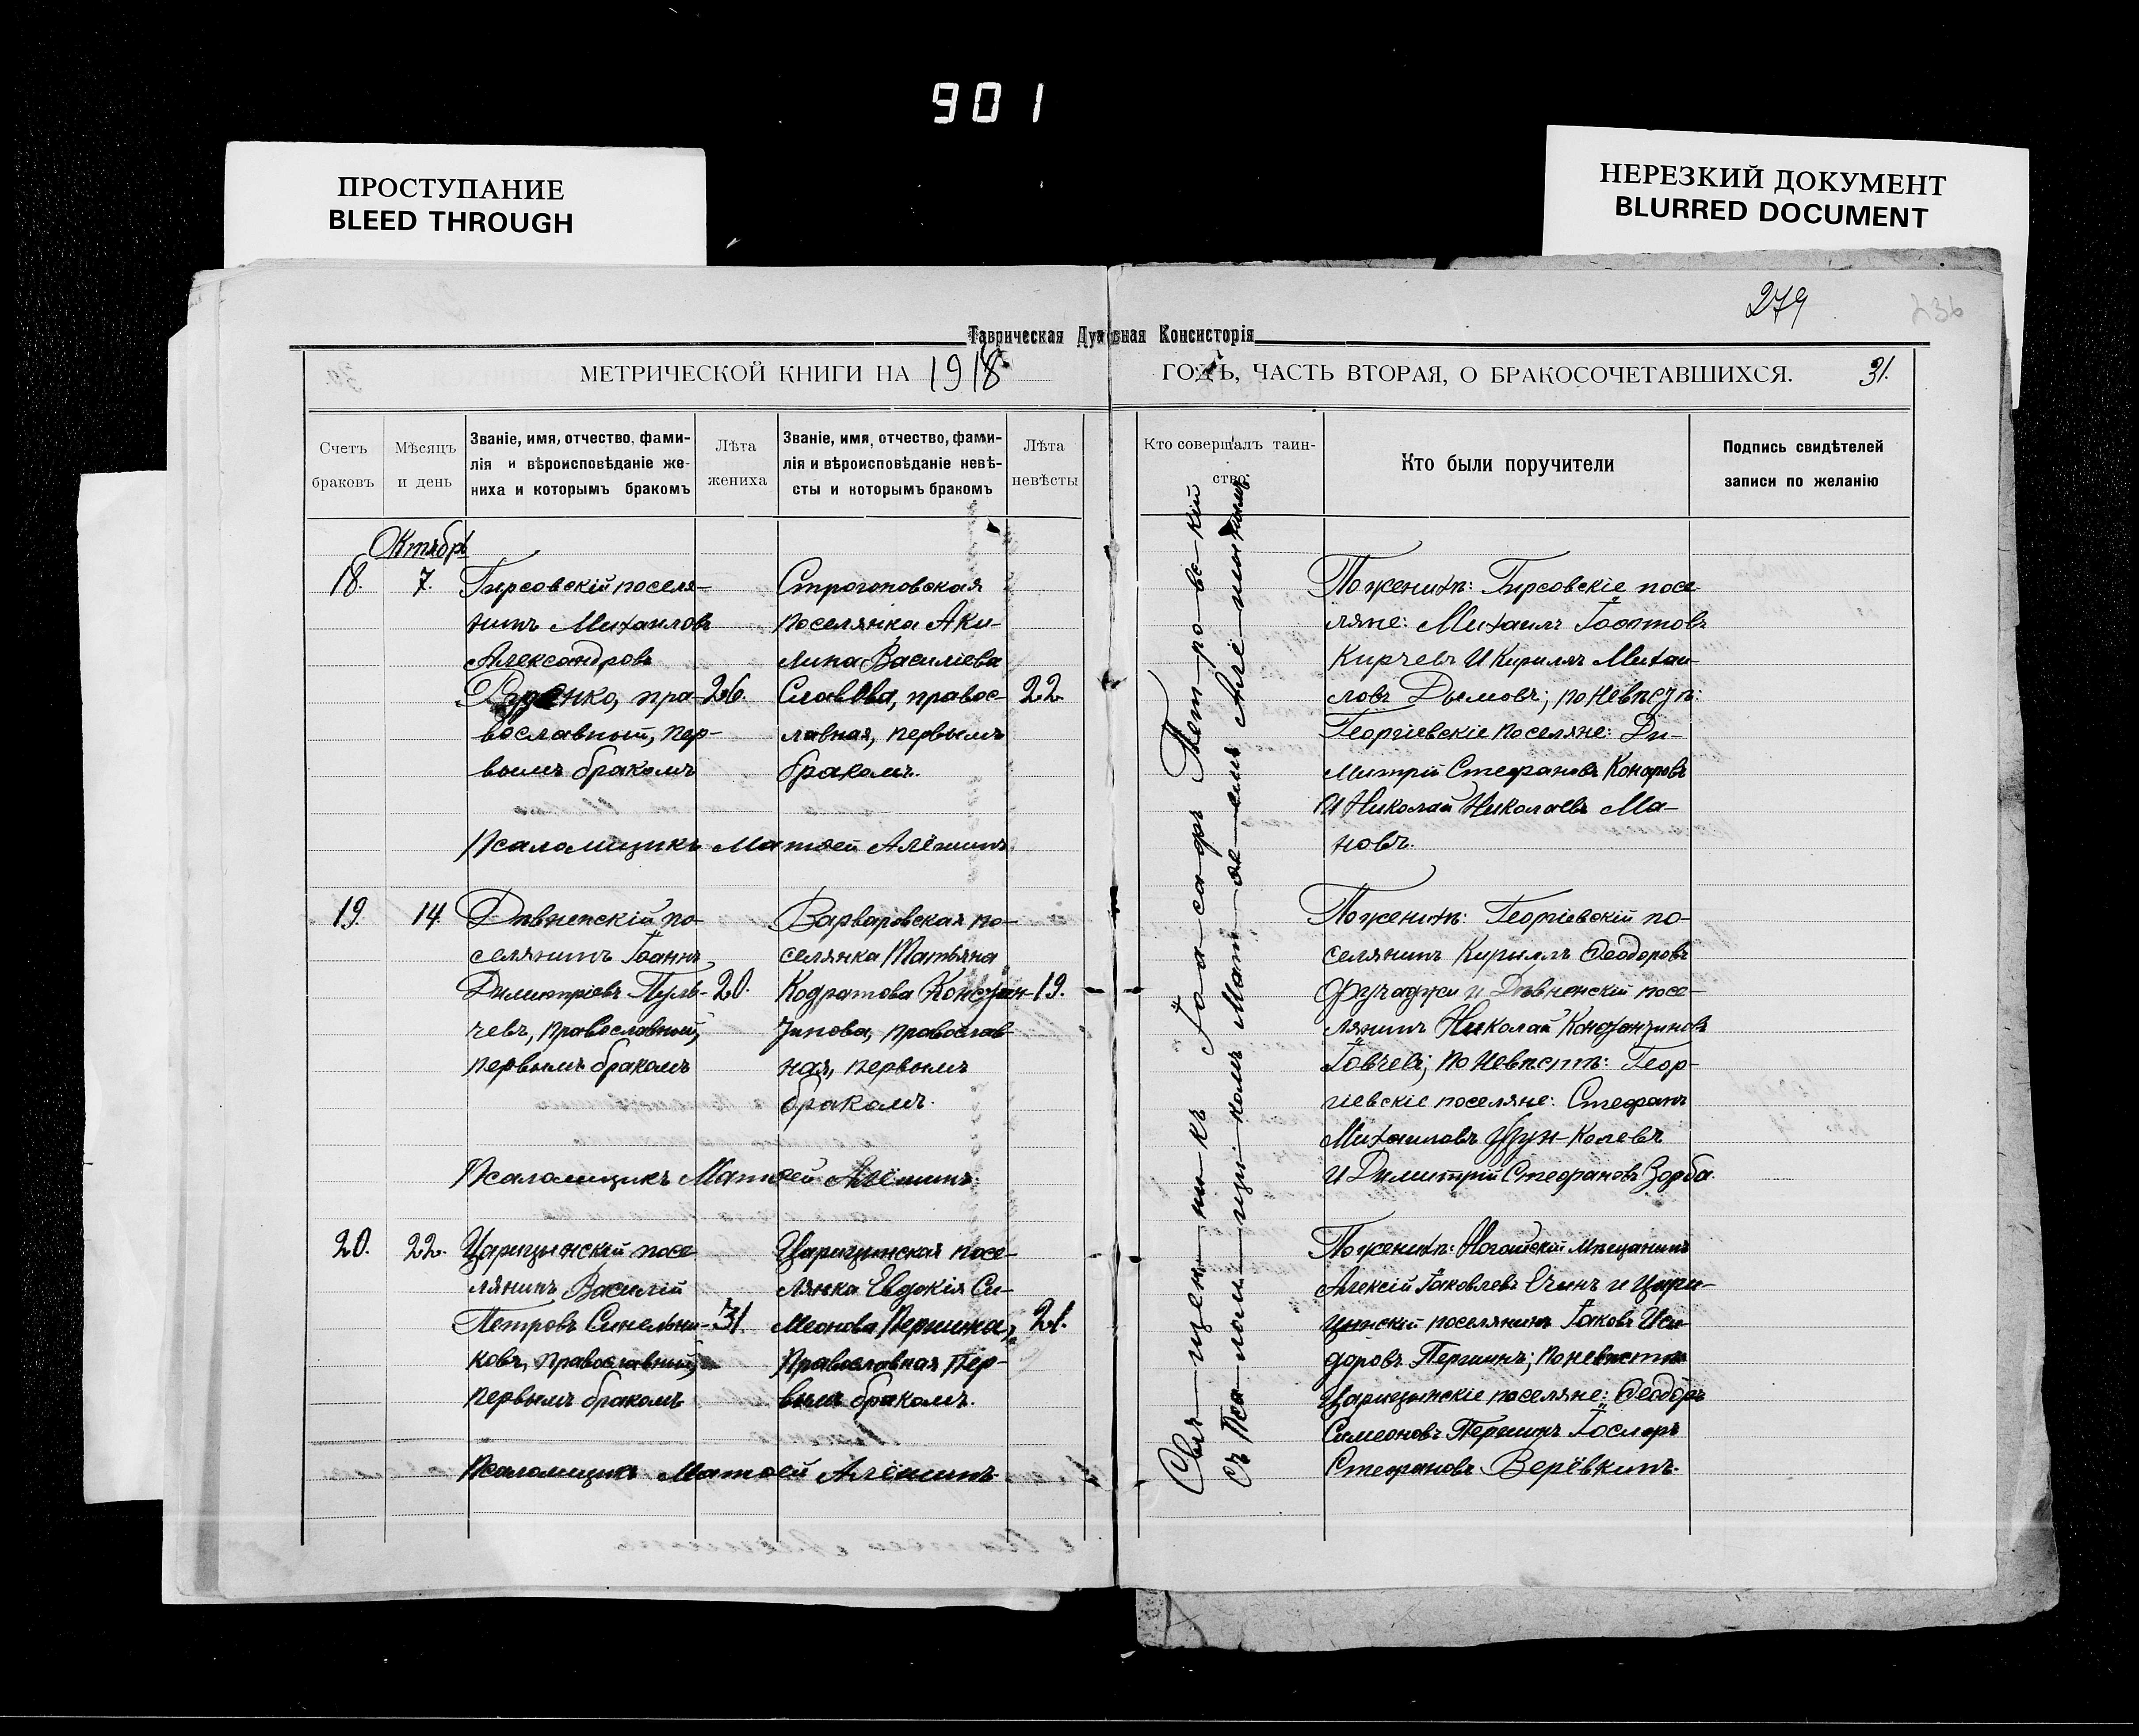 901
ПРОСТУПАНИЕ
BLEED THROUGH
НЕРЕЗКИЙ ДОКУМЕНТ
BLURRED DOCUMENT
279
236
Таврическая Духовная Консисторія
МЕТРИЧЕСКОЙ КНИГИ НА 1918 ГОДЪ, ЧАСТЬ ВТОРАЯ, О БРАКОСОЧЕТАВШИХСЯ. 31.
Счетъ браковъ
Мѣсяцъ и день
Званіе, имя, отчество, фами-
лія и вѣроисповѣданіе же-
ниха и которымъ бракомъ
Лѣта жениха
Званіе, имя, отчество, фами-
лія и вѣроисповѣданіе невѣ-
сты и которымъ бракомъ
Лѣта невѣсты
Кто совершалъ таин-
ство.
Кто были поручители
Подпись свидѣтелей
записи по желанію
Октябр
18. 7.
Гирсовскій поселя-
нинъ Михаилъ
Александровъ
пра- 26.
вославный, пер-
вымъ бракомъ
Строгоновская
поселянка Аки-
лина Василіева
правос- 22
лавная, первымъ
бракомъ.
Псаломщикъ Матѳей Алёшинъ.
По женихѣ: Гирсовскіе посе
ляне: Михаилъ
Кирчевъ и Кириллъ Михаи-
ловъ Дымовъ; по невѣстѣ:
Георгіевскіе поселяне: Ди-
митрій Стефановъ Коноровъ
и Николай Николаевъ Ма-
новъ.
19. 14.
Дѣвненскій по-
селянинъ Іоаннъ
Димитріевъ Пуль- 20.
чевъ, православный,
первымъ бракомъ
Варваровская по-
селянка Татьяна
Кодратова Констан- 19.
тинова, православ
ная, первымъ
бракомъ.
Псаломщикъ Матѳей Алёшинъ.
По женихѣ: Георгіевскій по-
селянинъ Кириллъ Ѳеодоровъ
Фучаджи и Дѣвненскій посе-
лянинъ Николай Константиновъ
Іовчевъ; по невѣстѣ: Геор-
гіевскіе поселяне: Стефанъ
Михаиловъ Узун-Колевъ
и Димитрій Стефановъ Зорба.
20. 22.
Царицынскій посе
лянинъ Василій
Петровъ Синельни- 31.
ковъ, православный,
первымъ бракомъ
Царицынская посе-
лянка Евдокія Си-
меонова Першина, 21.
православная пер-
вымъ бракомъ.
Псаломщикъ Матѳей Алёшинъ.
По женихѣ: Ногайскій мѣщанинъ
Алексій Іаковлевъ Ечинъ и Цари-
цынскій поселянинъ Іаковъ Иси
доровъ Першинъ; по невѣстѣ
Царицынскіе поселяне: Ѳеодоръ
Симеоновъ Першинъ
Стефановъ Верёвкинъ.
Свя-щен-ни-къ Петров-скій
съ Псаломщи-комъ Мат-ѳе-емъ Алё-шинымъ